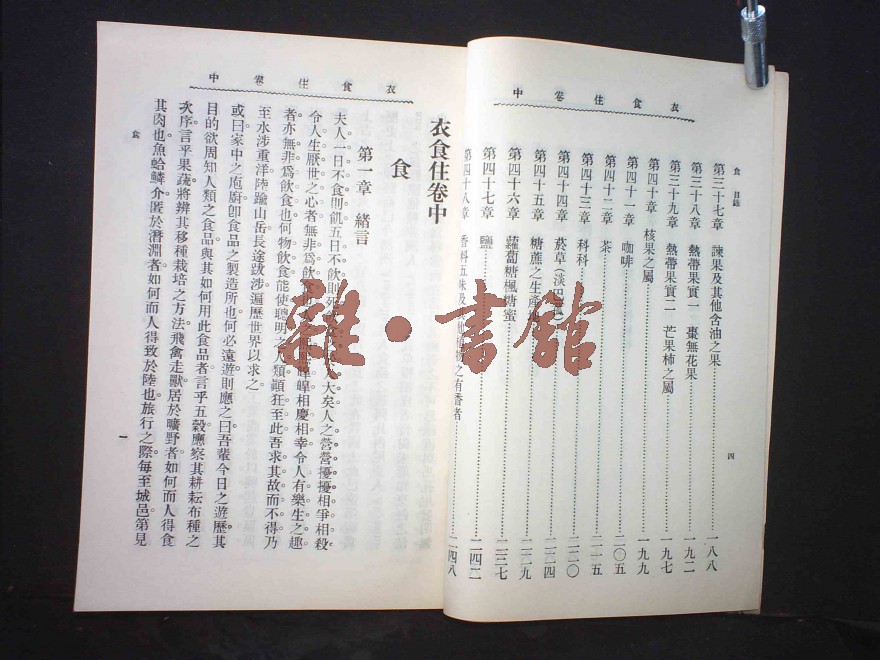 衣食住卷中
食 目錄
第三十七章 諫果及其他含油之果 一八八
第三十八章 熱帶果實一 棗無花果 一九二
第三十九章 熱帶果實二 芒果柿之屬 一九七
第四十章 核果之屬 一九九
第四十一章 咖啡 二〇五
第四十二章 茶 二一五
第四十三章 科科 二二〇
第四十四章 菸草(淡巴 二二四
第四十五章 糖蔗之生產 二二九
第四十六章 蘿蔔糖楓糖蜜 二三七
第四十七章 鹽 二四二
第四十八章 香料五味及 物之有香者 二四八
四
衣食住卷中
衣食住卷中
食
第一章 緒言
夫人一日不食則飢五日不飲則死 大矣人之營營擾擾相爭相殺
令人生厭世之心者無非爲飲食 皥皥相慶相幸令人有樂生之趣
者亦無非爲飲食也何物飲食能使聰明之人類顚狂至此吾求其故而不得乃
至水涉重洋陸踰山岳長途跋涉遍歷世界以求之
或曰家中之庖廚卽食品之製造所也何必遠遊則應之曰吾輩今日之遊歷其
目的欲周知人類之食品與其如何用此食品者言乎五穀應察其耕耘布種之
次序言乎果蔬將辨其移種栽培之方法飛禽走獸居於曠野者如何而人得食
其肉也魚蛤鱗介匿於潛淵者如何而人得致於陸也旅行之際每至城邑第見
食
一
雜·書館